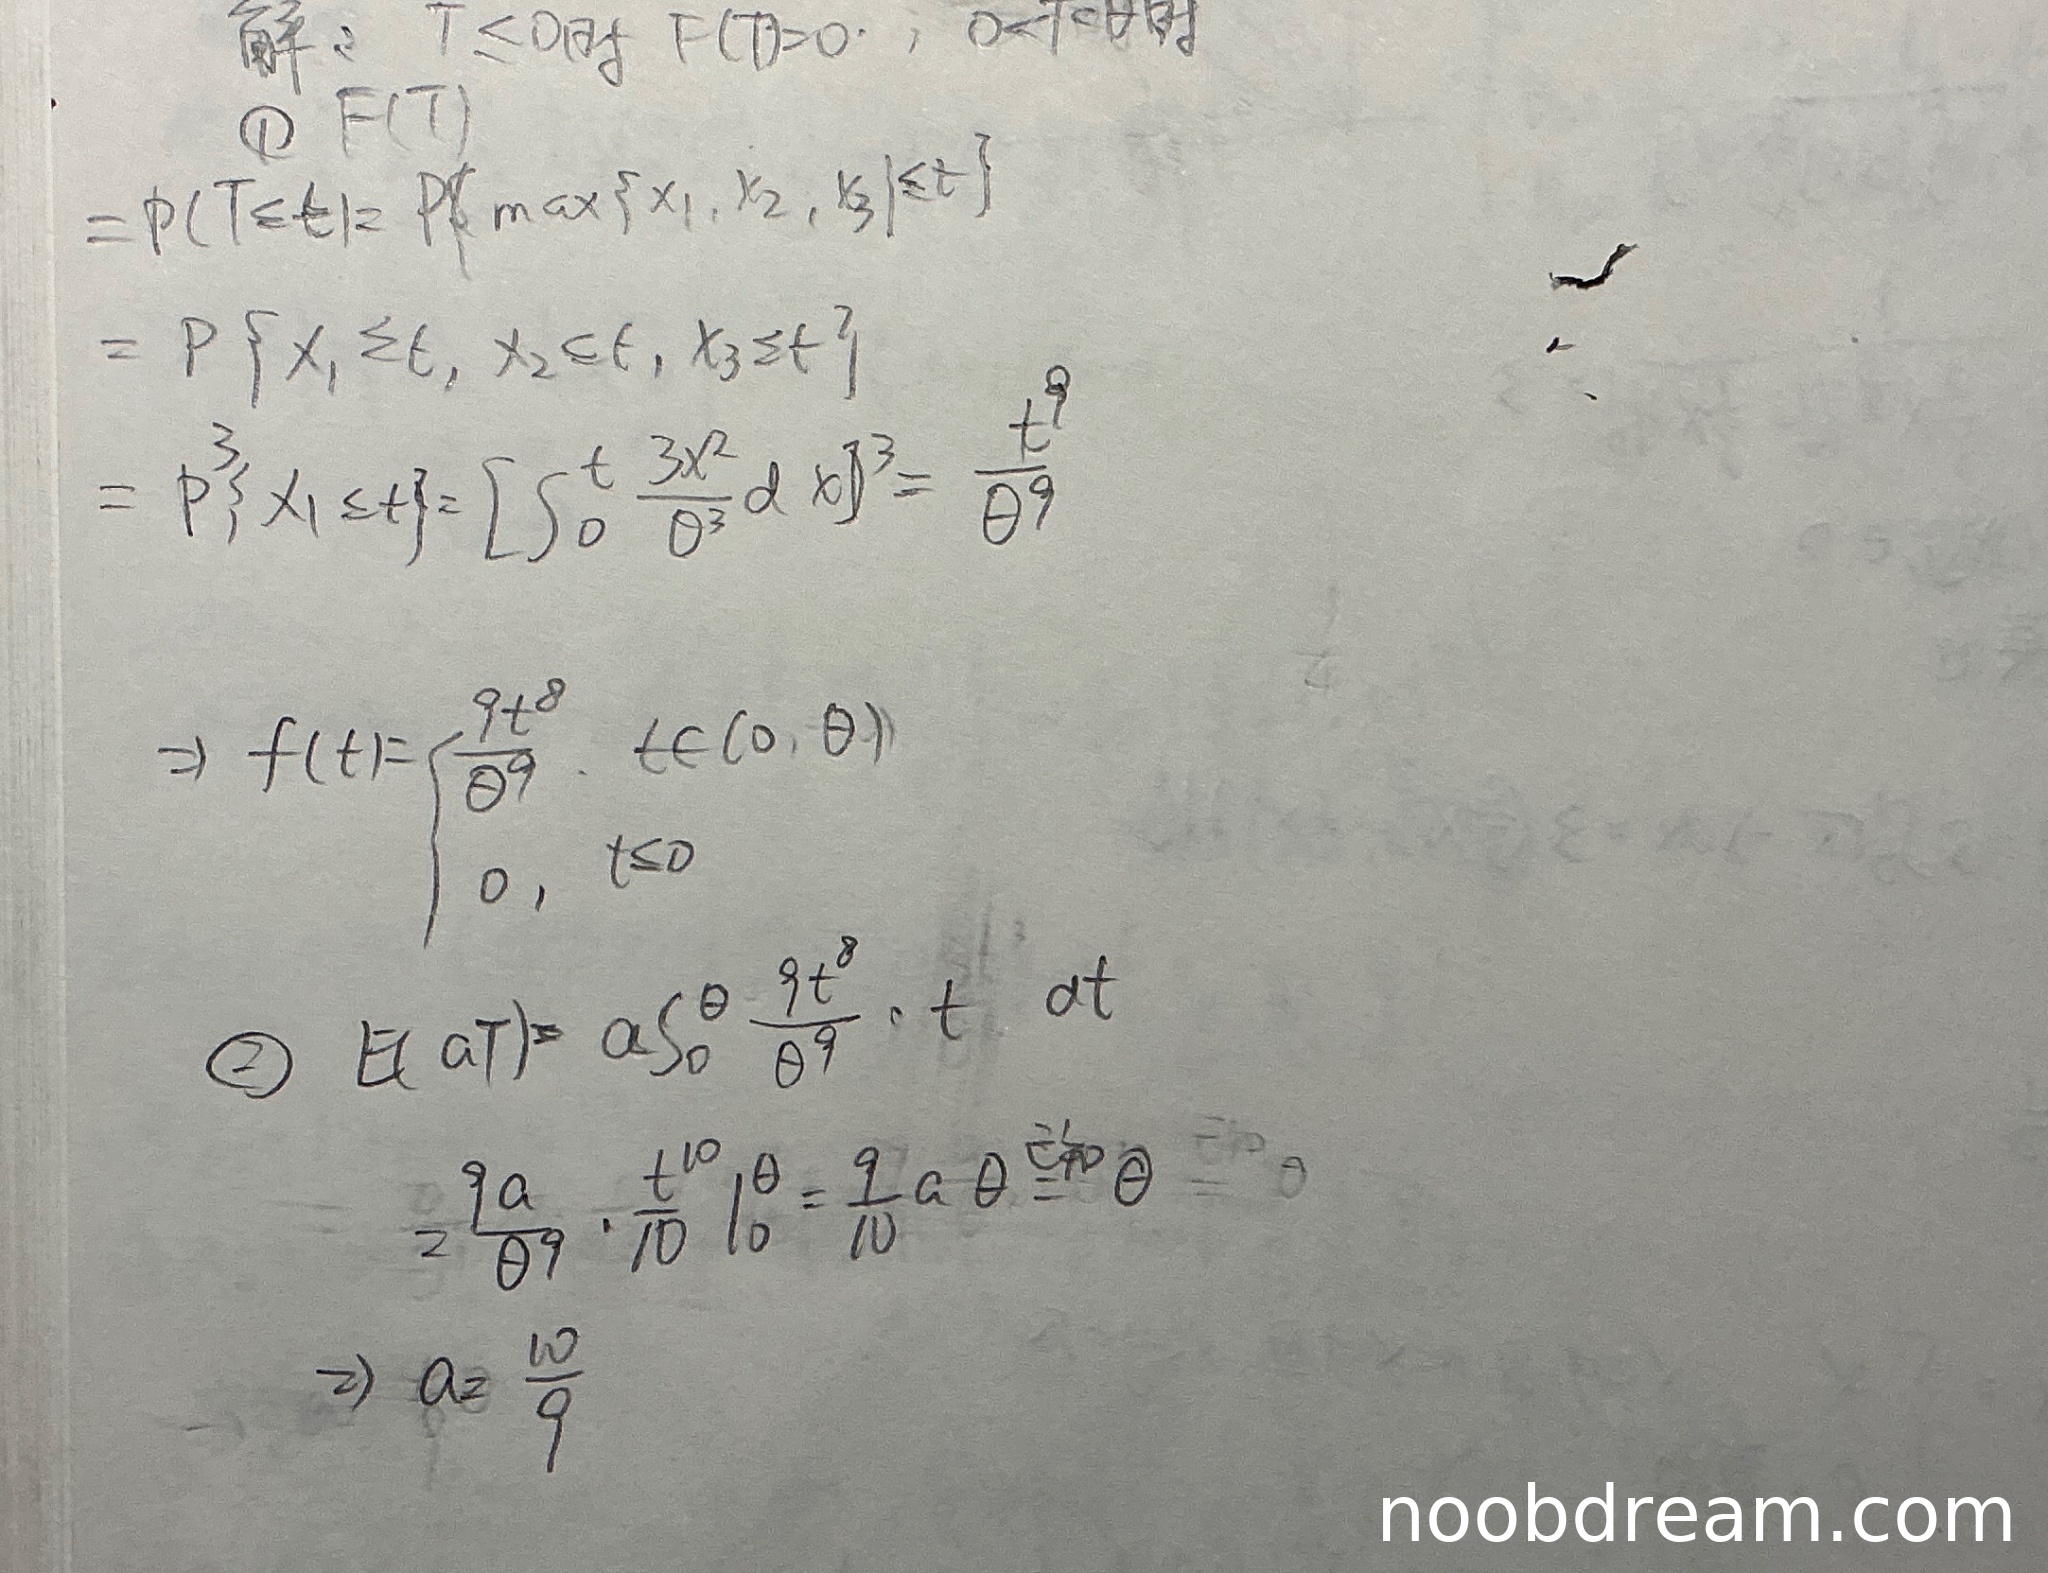 解: T≤0时 F(T)=0. , 0<T<θ时
① F(T)
=P(T≤t)= P{max{x₁, x₂, x₃|≤t}
= P{x₁≤t, x₂≤t, x₃≤t}
= P³{x₁≤t}= [∫₀ᵗ 3x²/θ³ dx]³= t⁹/θ⁹
⇒ f(t)={ 9t⁸/θ⁹. t∈(0, θ)
0, t≤0
② E(aT)= a∫₀^θ 9t⁸/θ⁹ · t dt
= 9a/θ⁹ · t¹⁰/10 |₀^θ = 9/10 a θ 已知= θ
⇒ a= 10/9
noobdream.com